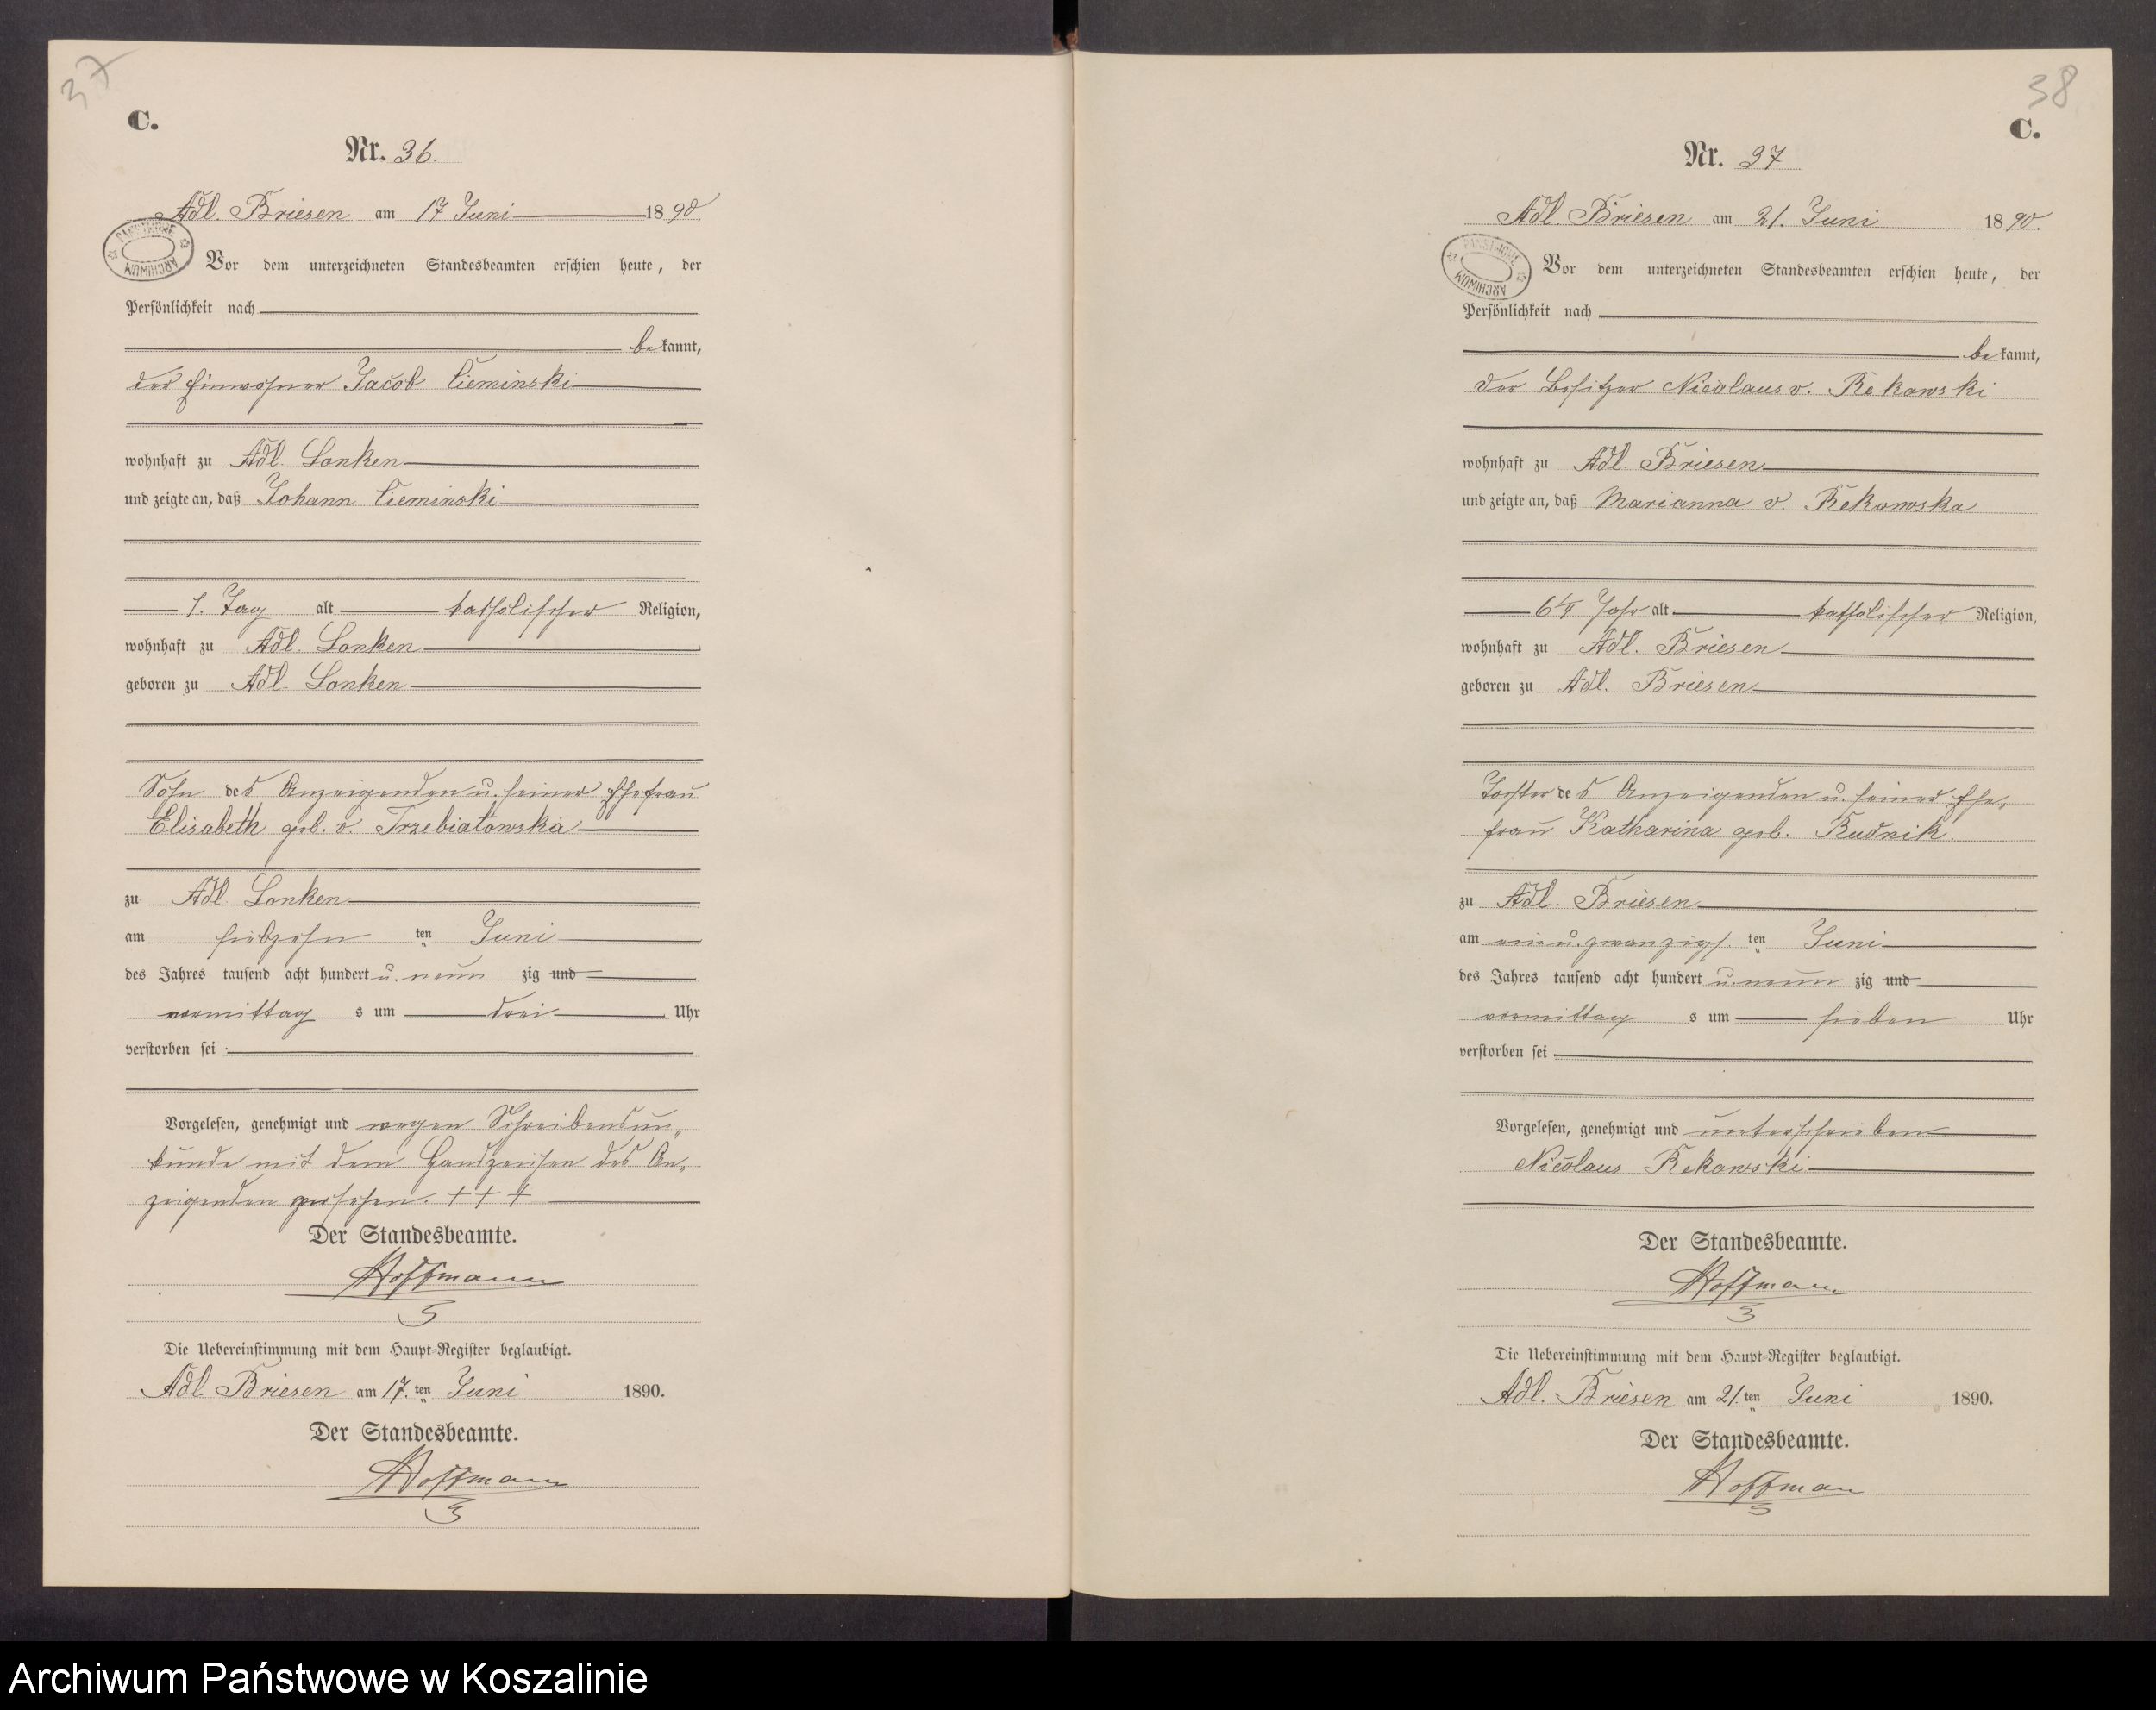 37
C.
Nr. 36.
Adl. Briesen am 17 Juni 1890.
PAŃSTWOWE ARCHIWUM
Vor dem unterzeichneten Standesbeamten erschien heute, der
Persönlichkeit nach
bekannt,
der Einwohner Jacob Cieminski
wohnhaft zu Adl. Lonken
und zeigte an, daß Johann Cieminski
1. Tag alt katholischer Religion,
wohnhaft zu Adl. Lonken
geboren zu Adl. Lonken
Sohn des Anzeigenden u. seiner Ehefrau
Elisabeth geb. v. Trzebiatowska
zu Adl. Lonken
am siebzehn ten Juni
des Jahres tausend acht hundert u. neun zig und
vormittag s um drei Uhr
verstorben sei
Vorgelesen, genehmigt und wegen Schreibensun„
kunde mit dem Handzeichen des An„
zeigenden versehen. + + +
Der Standesbeamte.
Hoffmann
Die Uebereinstimmung mit dem Haupt-Register beglaubigt.
Adl. Briesen am 17.ten Juni 1890.
Der Standesbeamte.
Hoffmann
38
C.
Nr. 37
Adl. Briesen am 21. Juni 1890.
PAŃSTWOWE ARCHIWUM
Vor dem unterzeichneten Standesbeamten erschien heute, der
Persönlichkeit nach
bekannt,
der Besitzer Nicolaus v. Rekowski
wohnhaft zu Adl. Briesen
und zeigte an, daß Marianna v. Rekowska
6 1/4 Jahr alt katholischer Religion,
wohnhaft zu Adl. Briesen
geboren zu Adl. Briesen
Tochter des Anzeigenden u. seiner Ehe„
frau Katharina geb. Rudnik.
zu Adl. Briesen
am ein u. zwanzigs. ten Juni
des Jahres tausend acht hundert u. neun zig und
vormittag s um sieben Uhr
verstorben sei
Vorgelesen, genehmigt und unterschrieben
Nicolaus Rekowski
Der Standesbeamte.
Hoffmann
Die Uebereinstimmung mit dem Haupt-Register beglaubigt.
Adl. Briesen am 21.ten Juni 1890.
Der Standesbeamte.
Hoffmann
Archiwum Państwowe w Koszalinie